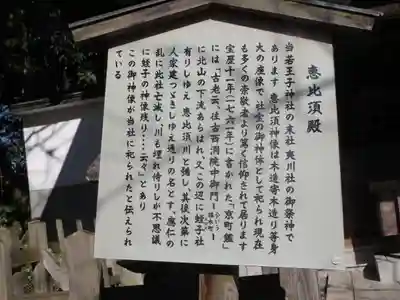 恵比須殿
当若王子神社の末社 夷川社の御祭神で
あります 恵比須神像は木造寄木造り等身
大の座像で 社宝の御神体として祀られ現在
も多くの崇敬者より篤く信仰されて居ります
宝歴十一年(一七六一年)に書かれた「京町鑑」
には「古老云、往古西洞院中御門
に北山の下流あらはれ 又この辺に蛭子社
有りしゆえ 恵比須川と号し、其後次第に
人家建つゞきしゆえ通りの名とす、應仁の
乱に此社亡滅し、川も埋れ侍りしが不思議
に蛭子の神像残り・・・・云々」とあり
この御神像が当社に祀られたと伝えられ
ている